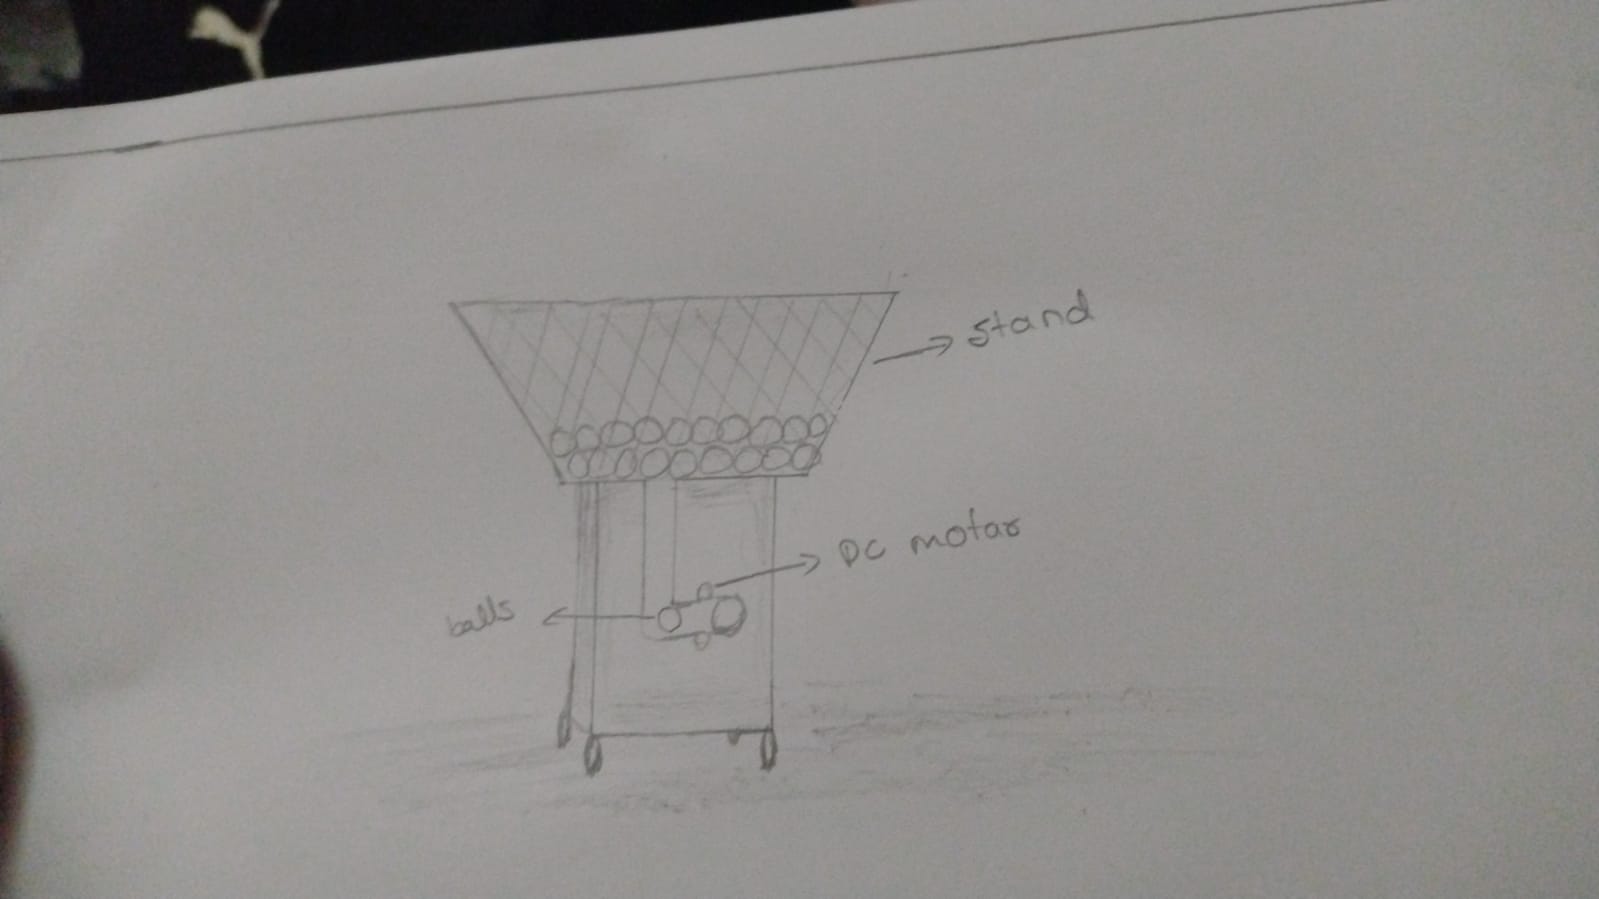 stand
DC motar
balls